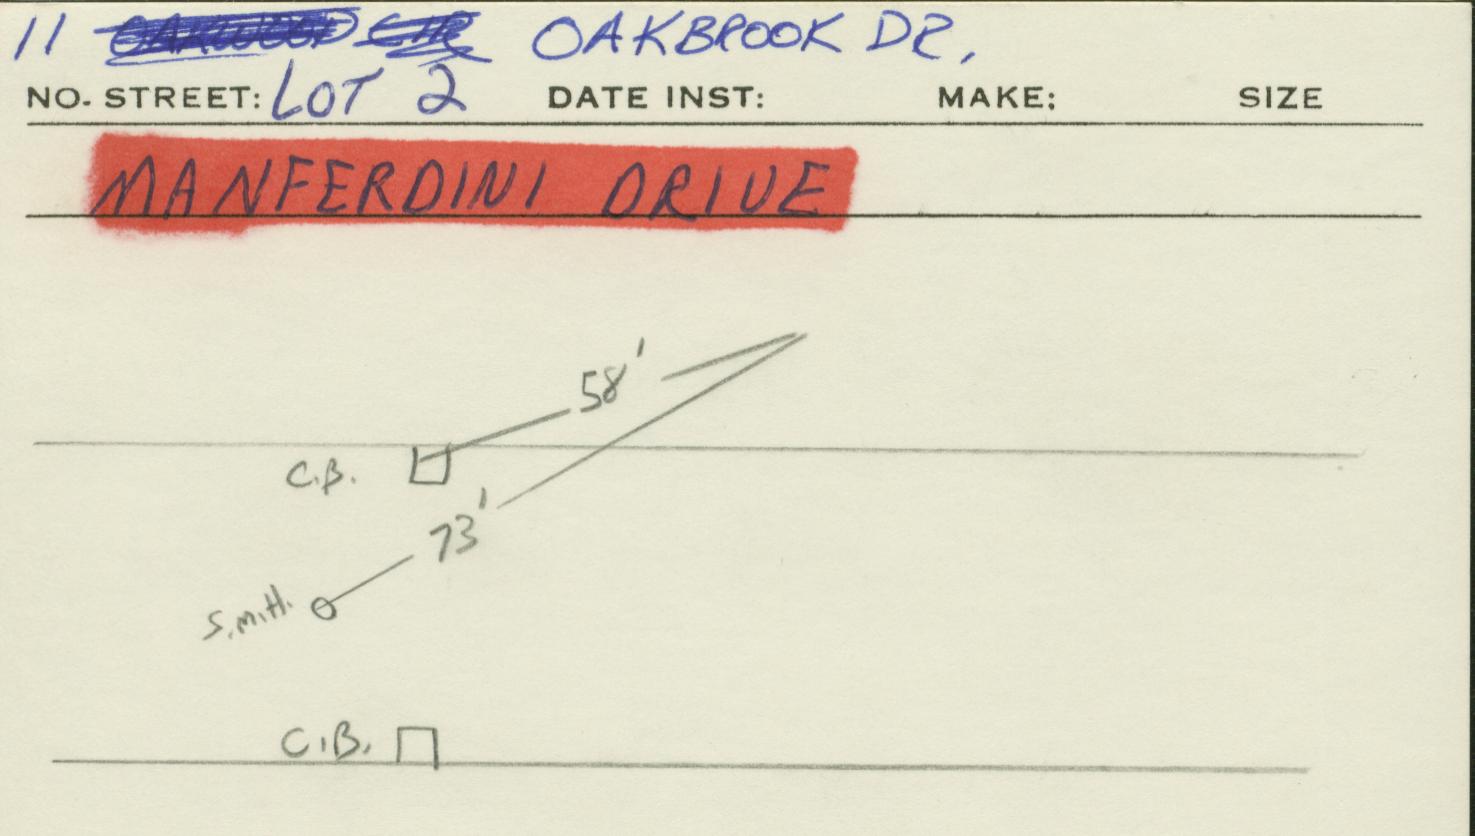 11 OAKBROOK DR.
NO. STREET: LOT 2 DATE INST: MAKE: SIZE
MANFERDINI DRIVE
58'
C.B.
73'
S.M.H.
C.B.